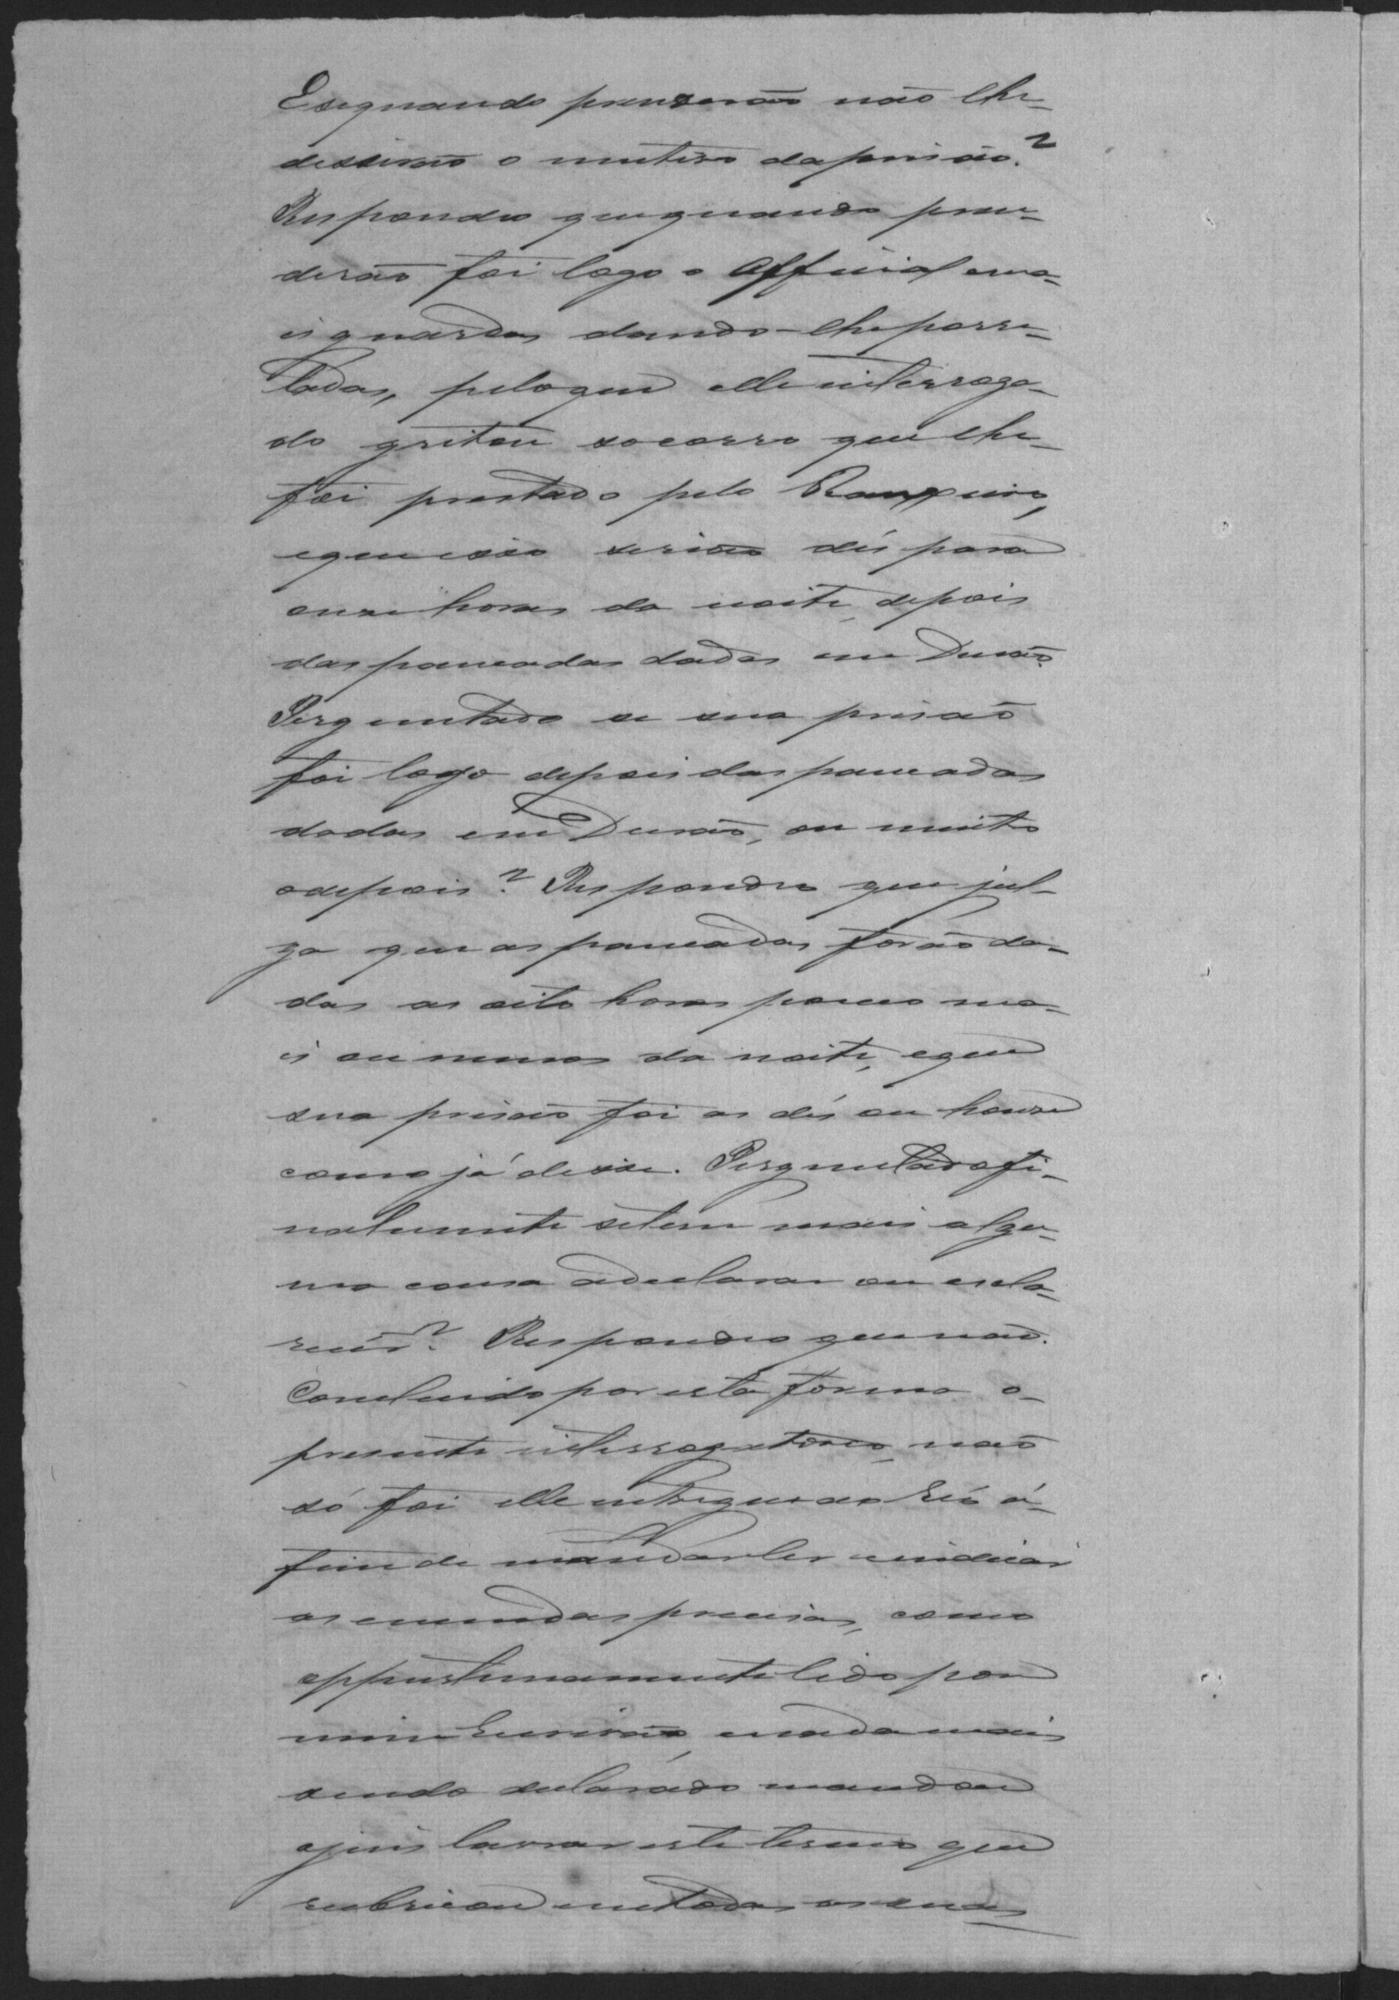 E se quando prenderão não lhe
disserão o motivo da prisão?
Respondeo que quando pren-
derão foi logo o Official e ma-
is guardas dando-lhe porre-
tadas, pelo que elle interroga-
do gritou socorro que lhe
foi prestado pelo
e que isso serião dés para
onze horas da noite, depois
das pancadas dadas em Durão.
Perguntado se sua prisão
foi logo depois das pancadas
dadas em Durão, ou muito
adepois? Respondeo que jul-
ga que as pancadas forão da-
das as oito horas pouco ma-
is ou menos da noite, e que
sua prisão foi as dés ou honze
como já disse. Perguntado fi-
nalmente se tem mais algu-
ma cousa adeclarar ou escla-
recer? Respondeo que não.
Concluido por esta forma o
presente interrogatorio, não
só foi elle entregue ao Réo á
fim de mandar ler e indicar
as emendas precisas, como
oppurtunamente lido por
mim Escrivão, e nada mais
sendo declarado mandou
o juis lavrar este termo que
rubricou em todas as suas